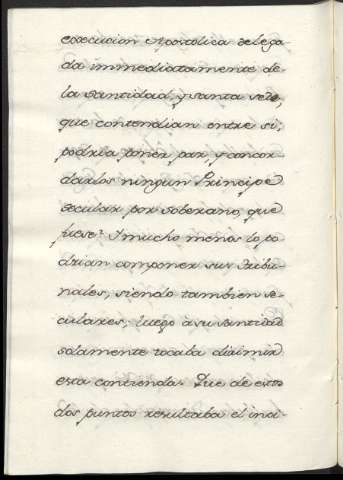 execucion Apostolica delega-
da immediatamente de
la Santidad, y Santa Sede,
que contendian entre si;
podria poner paz y concor-
darlos ningun Principe
secular por soberano, que
fuese? Y mucho menos lo po-
drian componer sus Tribu-
nales, siendo tambien se-
culares, luego a su Santidad
solamente tocaba dirimir
esta contienda. Que de estos
dos puntos resultaba el inci-